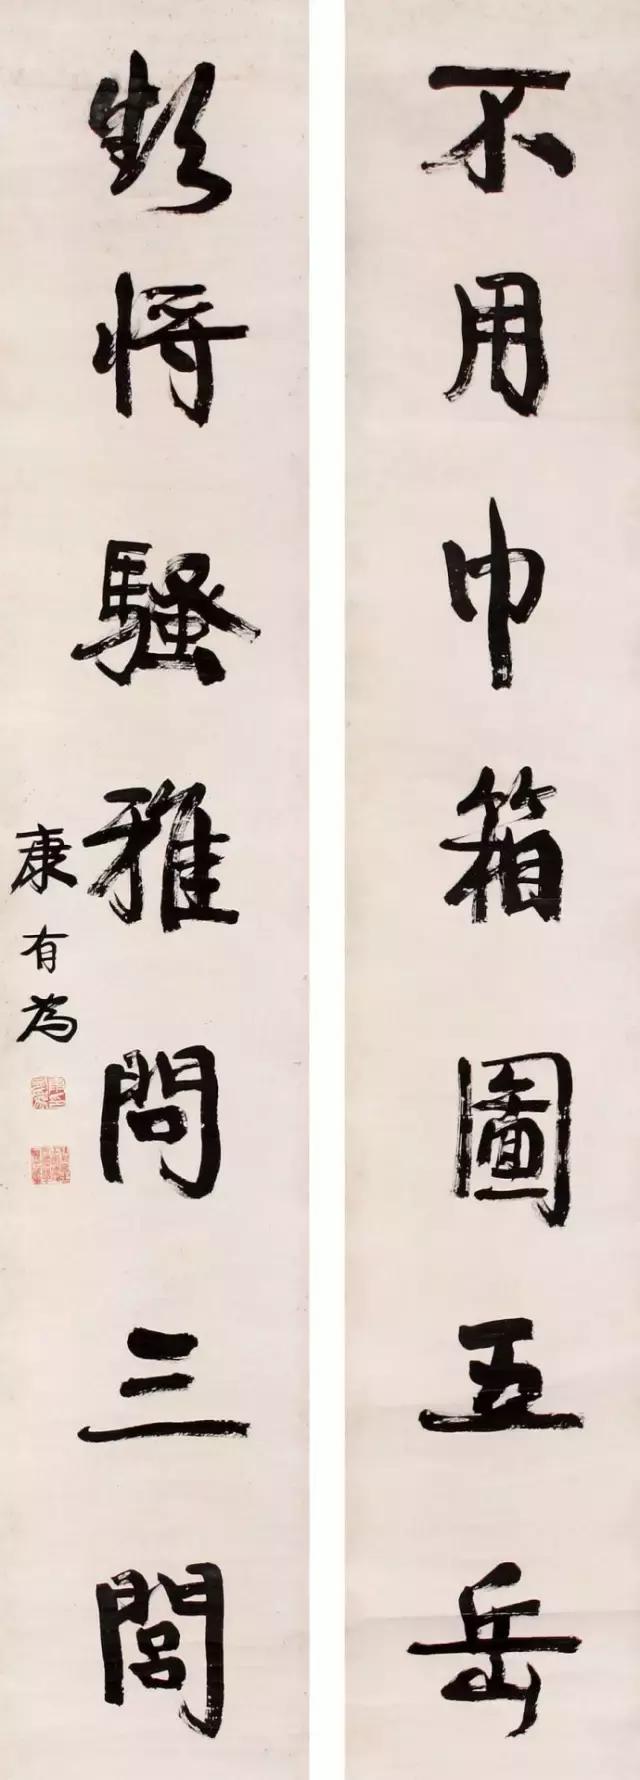 不用巾箱圖五岳
将騷雅問三閭
康有為